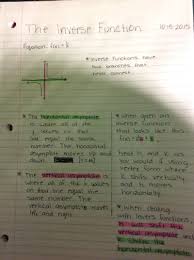 The Inverse Function 10.15.2015
Equation: f(x) = 1/x
• Inverse functions have two branches that never connect
• The horizontal asymptote is where all of the y values on that line equal the same number. The horizontal asymptote moves up and down
• The vertical asymptote is where all of the x values on that line equal the same number. The vertical asymptote moves left and right.
• when given an inverse function that looks like this
treat h and k as you would if using vertex form where k shifts vertically and h moves horizontally
• when dealing with inverse functions
h will shift the vertical asymptote and k shifts the horizontal asymptote